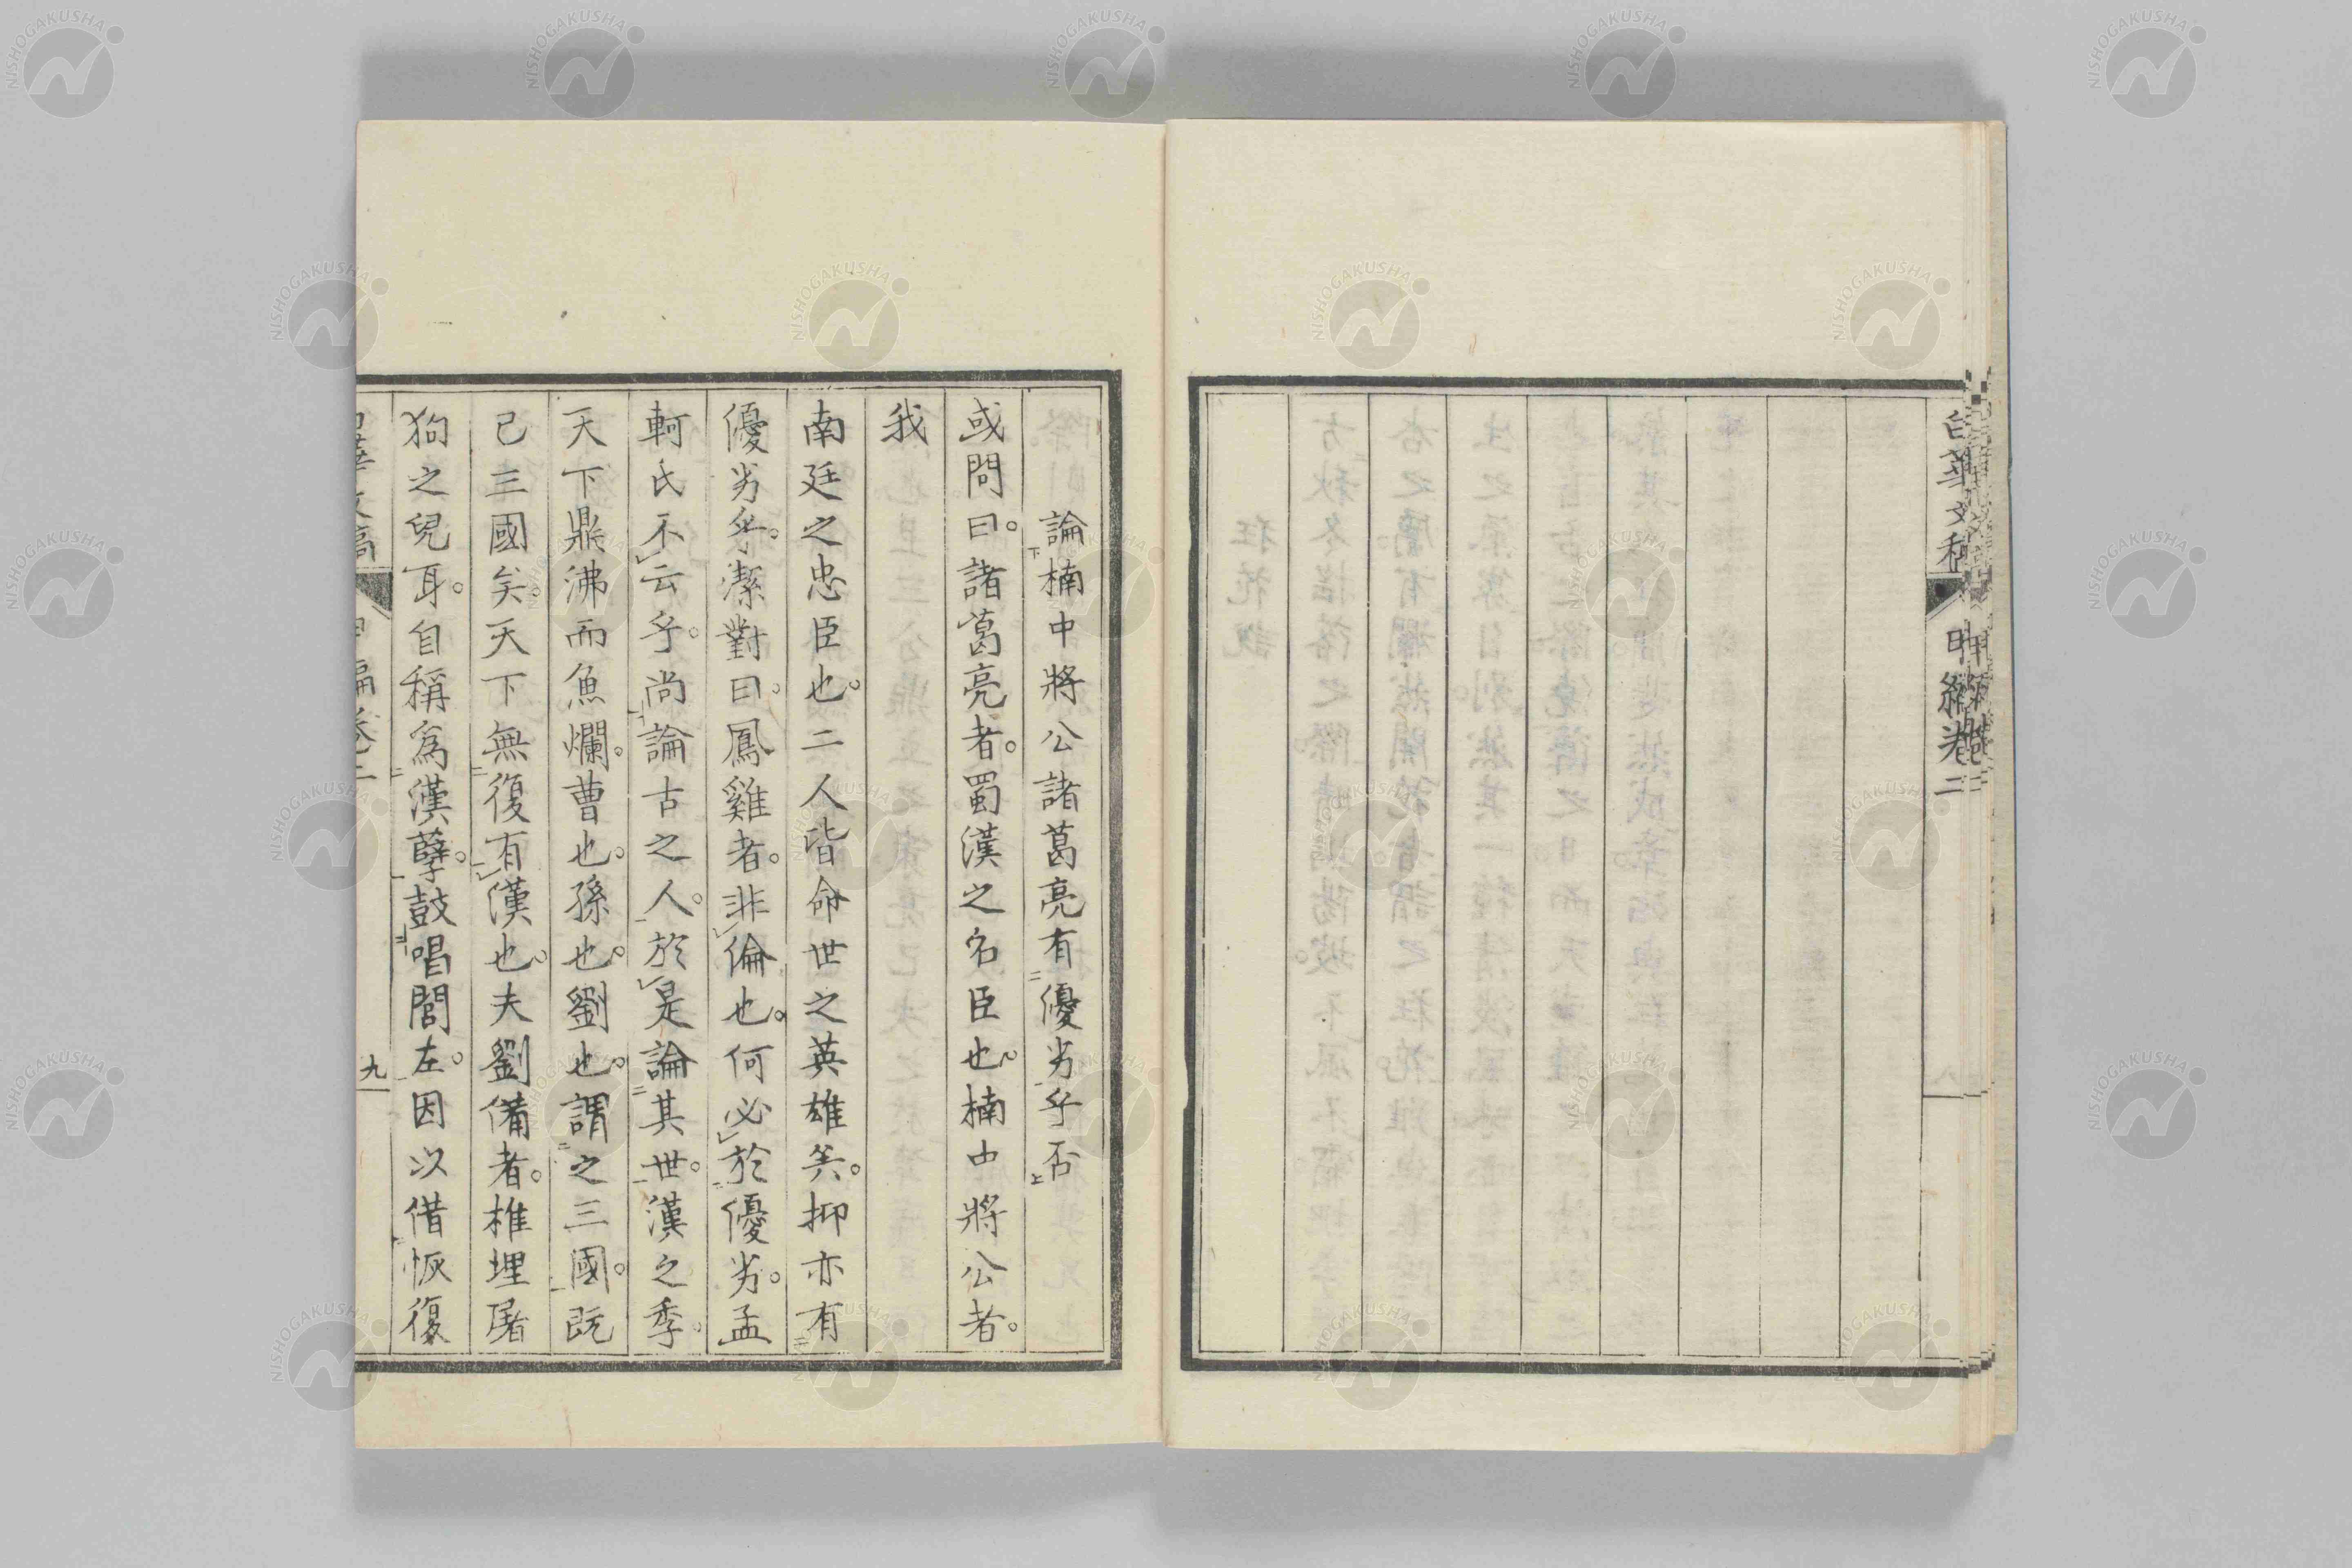 白華文稿 甲編卷二
論楠中將公諸葛亮有優劣乎否
或問曰。諸葛亮者。蜀漢之名臣也。楠中將公者。
我
南廷之忠臣也。二人皆命世之英雄矣。抑亦有
優劣乎。潔對曰。鳳雞者。非倫也。何必於優劣。孟
軻氏不云乎。尚論古之人。於是論其世。漢之季。
天下鼎沸而魚爛。曹也。孫也。劉也。謂之三國。既
已三國矣。天下無復有漢也。夫劉備者。椎埋屠
狗之兒耳。自稱爲漢孽。鼓唱閭左。因以借恢復
九
NISHOGAKUSHA